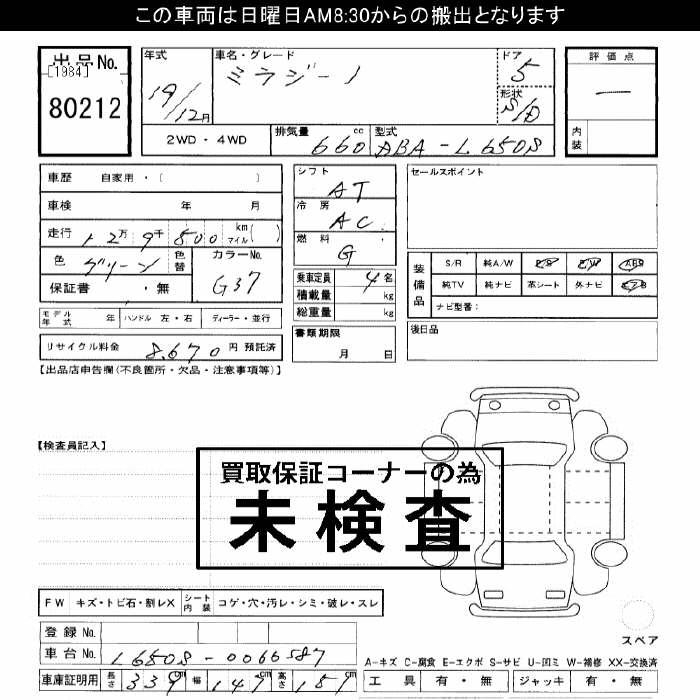 この車両は日曜日AM8:30からの搬出となります
出品No.
[1984]
80212
年式
19/12月
車名・グレード
ミラジーノ
ドア
5
形状
S/D
2WD・4WD
排気量
660 cc
型式
ABA-L650S
評価点
—
内装
車歴 自家用・( )
車検 年 月
走行 12万9千800 km マイル( )
色 グリーン 色替
カラーNo.
G37
保証書 ・無
モデル年式 年 ハンドル 左・右 ディーラー・並行
リサイクル料金 8,670円 預託済
シフト
AT
冷房
AC
燃料
G
乗車定員 4名
積載量 kg
総重量 kg
書類期限
月 日
セールスポイント
装備品
S/R 純A/W P/S P/W ABS
純TV 純ナビ 革シート 外ナビ エアB
ナビ型番:
後日品
【出品店申告欄(不良箇所・欠品・注意事項等)】
【検査員記入】
買取保証コーナーの為
未検査
FW キズ・トビ石・割レX シート内装 コゲ・穴・汚レ・シミ・破レ・スレ
登録No.
車台No. L650S-0066587
車庫証明用 長さ 339cm 幅 147cm 高さ 151cm
スペア
A-キズ C-腐食 E-エクボ S-サビ U-凹ミ W-補修 XX-交換済
工具 有・無 ジャッキ 有・無